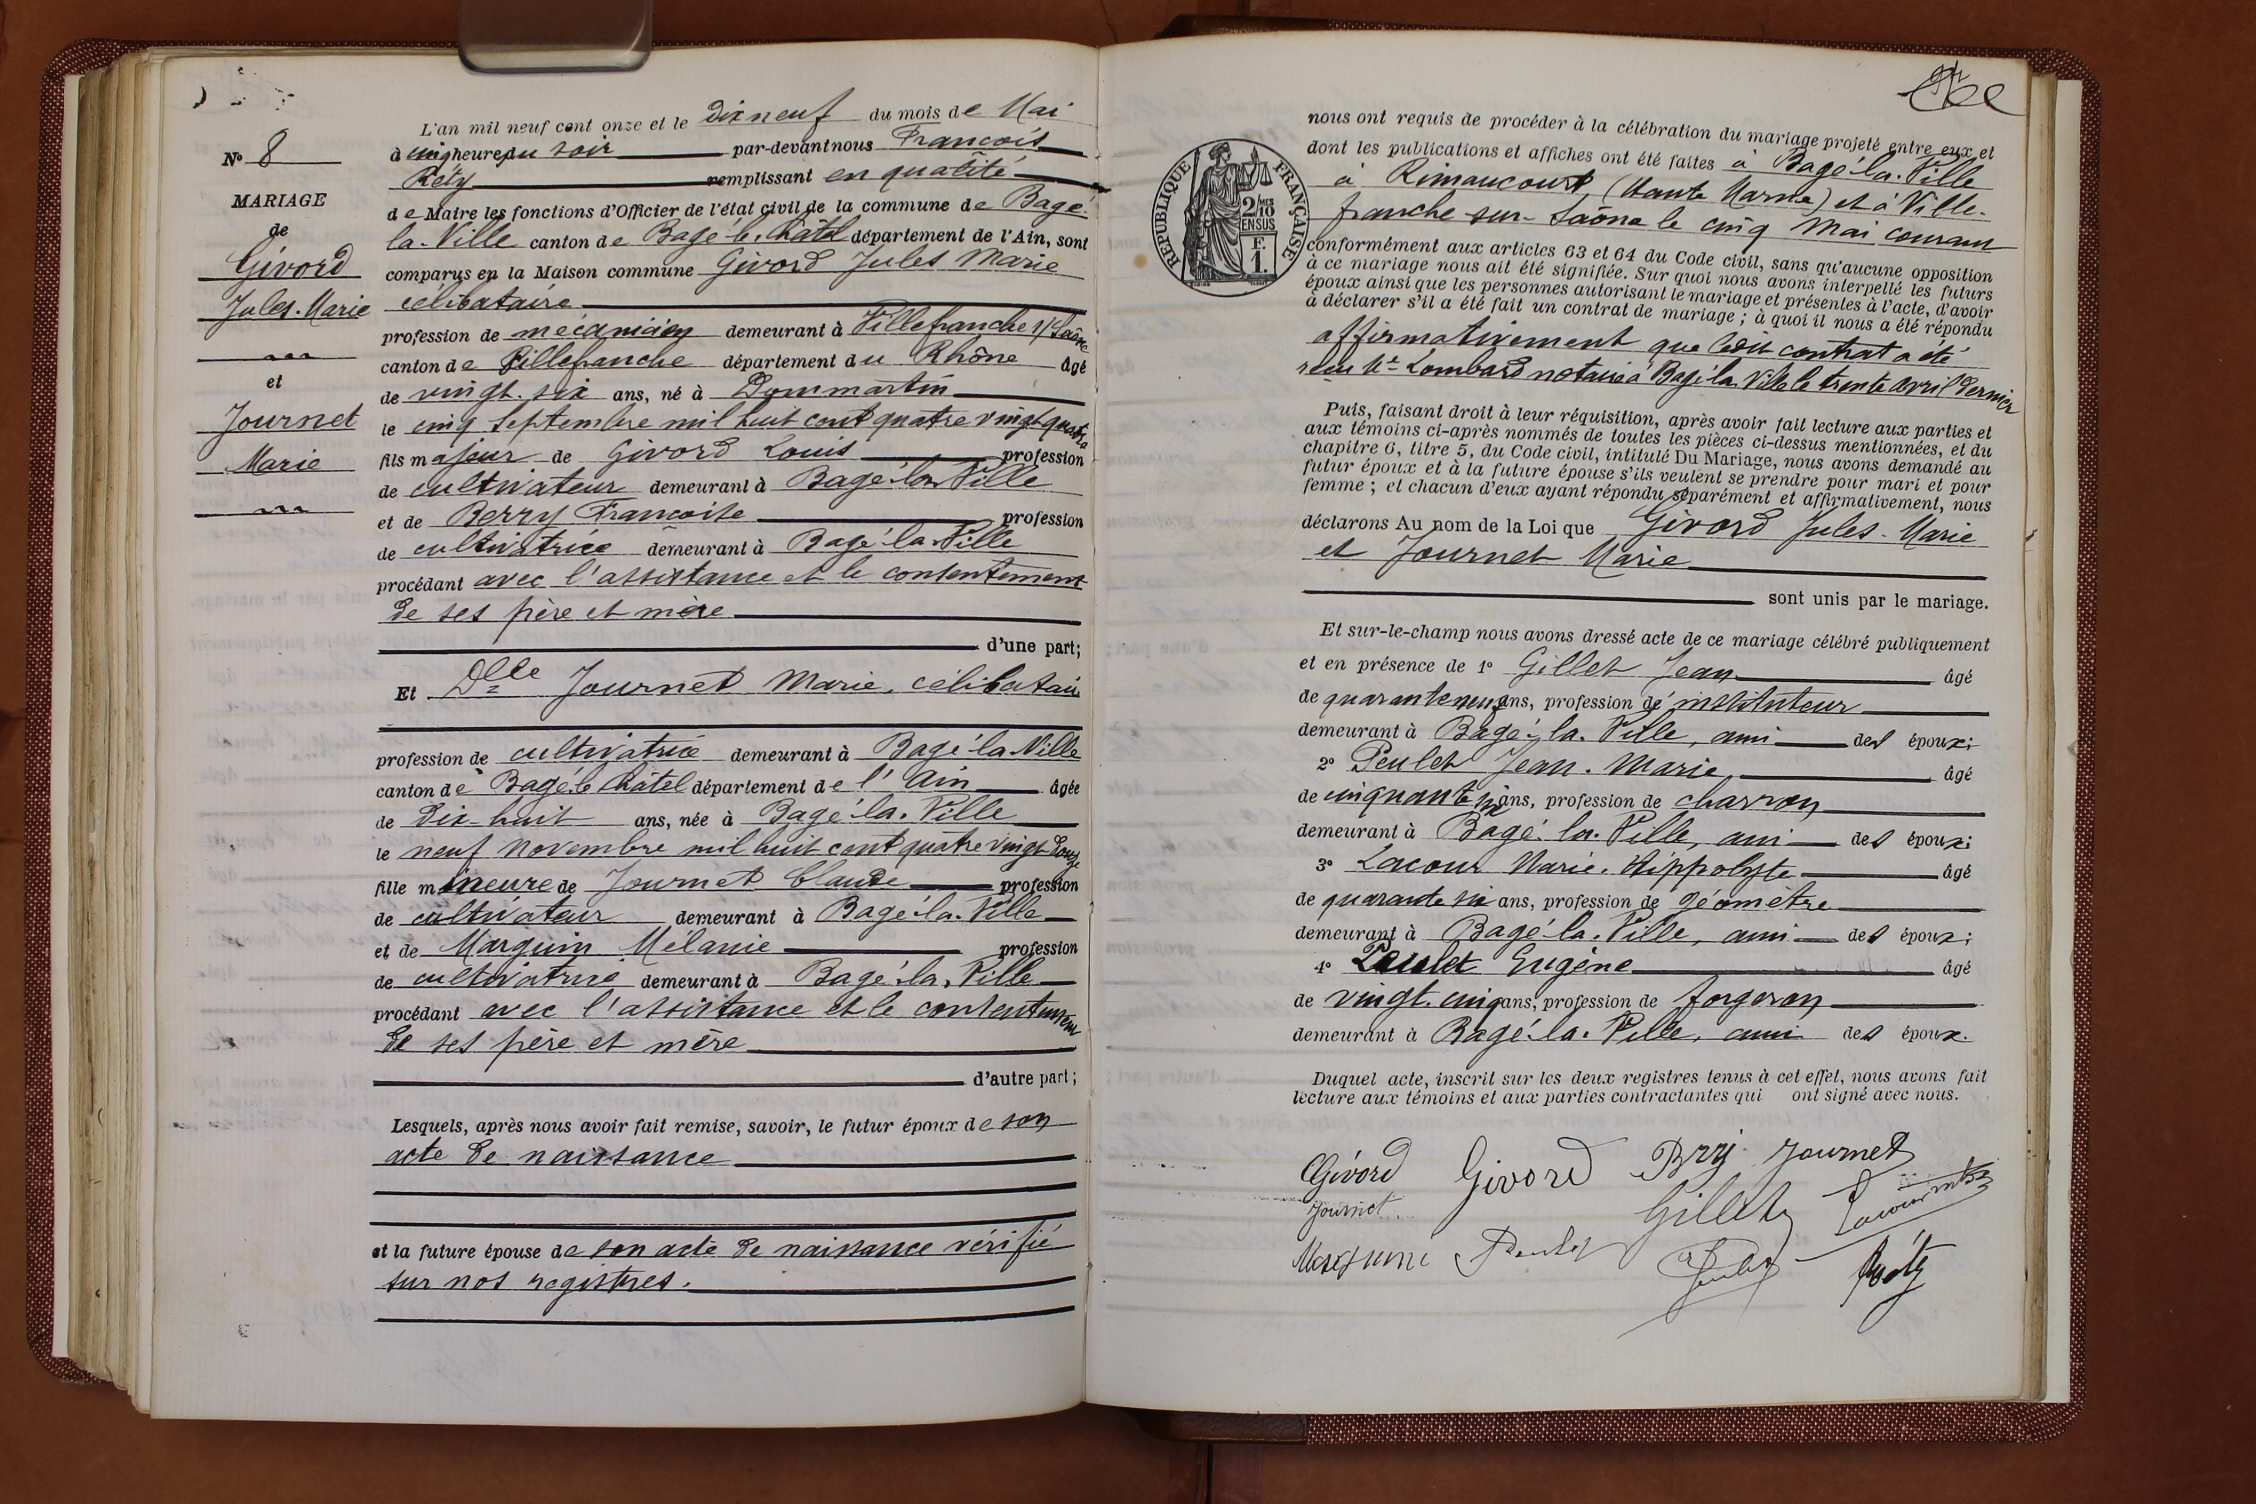 L'an mil neuf cent onze et le Dix neuf du mois de Mai
N° 8
à cinq heures du soir par-devant nous François
Réty remplissant en qualité
MARIAGE
de Maire les fonctions d'Officier de l'état civil de la commune de Bagé-
de
la-Ville canton de Bagé-le-Châtel département de l'Ain, sont
Givord
comparus en la Maison commune Givord Jules Marie
Jules-Marie
célibataire
profession de mécanicien demeurant à Villefranche s/ Saône
canton de Villefranche département du Rhône âgé
et
de vingt-six ans, né à Dommartin
Journet
le cinq Septembre mil huit cent quatre vingt quatre
Marie
fils majeur de Givord Louis profession
de cultivateur demeurant à Bagé-la-Ville
et de Berry Françoise profession
de cultivatrice demeurant à Bagé-la-Ville
procédant avec l'assistance et le consentement
de ses père et mère
d'une part;
Et Dlle Journet Marie, célibataire
profession de cultivatrice demeurant à Bagé-la-Ville
canton de Bagé-le-Châtel département de l'Ain âgée
de Dix-huit ans, née à Bagé-la-Ville
le neuf Novembre mil huit cent quatre vingt Douze
fille mineure de Journet Claude profession
de cultivateur demeurant à Bagé-la-Ville
et de Marguin Mélanie profession
de cultivatrice demeurant à Bagé-la-Ville
procédant avec l'assistance et le consentement
de ses père et mère
d'autre part;
Lesquels, après nous avoir fait remise, savoir, le futur époux de son
acte de naissance
et la future épouse de son acte de naissance vérifié
sur nos registres.
RÉPUBLIQUE FRANÇAISE
2 MES
10
EN SUS
F.
1.
nous ont requis de procéder à la célébration du mariage projeté entre eux et
dont les publications et affiches ont été faites à Bagé-la-Ville
à Rimaucourt (Haute Marne) et à Ville-
franche-sur-Saône le cinq Mai courant
conformément aux articles 63 et 64 du Code civil, sans qu'aucune opposition
à ce mariage nous ait été signifiée. Sur quoi nous avons interpellé les futurs
époux ainsi que les personnes autorisant le mariage et présentes à l'acte, d'avoir
à déclarer s'il a été fait un contrat de mariage; à quoi il nous a été répondu
affirmativement que ledit contrat a été
reçu Me Lombard notaire à Bagé-la-Ville le trente Avril dernier
Puis, faisant droit à leur réquisition, après avoir fait lecture aux parties et
aux témoins ci-après nommés de toutes les pièces ci-dessus mentionnées, et du
chapitre 6, titre 5, du Code civil, intitulé Du Mariage, nous avons demandé au
futur époux et à la future épouse s'ils veulent se prendre pour mari et pour
femme; et chacun d'eux ayant répondu séparément et affirmativement, nous
déclarons Au nom de la Loi que Givord Jules-Marie
et Journet Marie
sont unis par le mariage.
Et sur-le-champ nous avons dressé acte de ce mariage célébré publiquement
et en présence de 1° Gillet Jean âgé
de quarante neuf ans, profession de instituteur
demeurant à Bagé-la-Ville, ami des époux;
2° Peulet Jean-Marie âgé
de cinquante six ans, profession de charron
demeurant à Bagé-la-Ville, ami des époux;
3° Lacour Marie-Hippolyte âgé
de quarante six ans, profession de géomètre
demeurant à Bagé-la-Ville, ami des époux;
4° Peulet Eugène âgé
de vingt-cinq ans, profession de forgeron
demeurant à Bagé-la-Ville, ami des époux.
Duquel acte, inscrit sur les deux registres tenus à cet effet, nous avons fait
lecture aux témoins et aux parties contractantes qui ont signé avec nous.
Givord Givord Journet
Journet Gillet
Peulet Réty